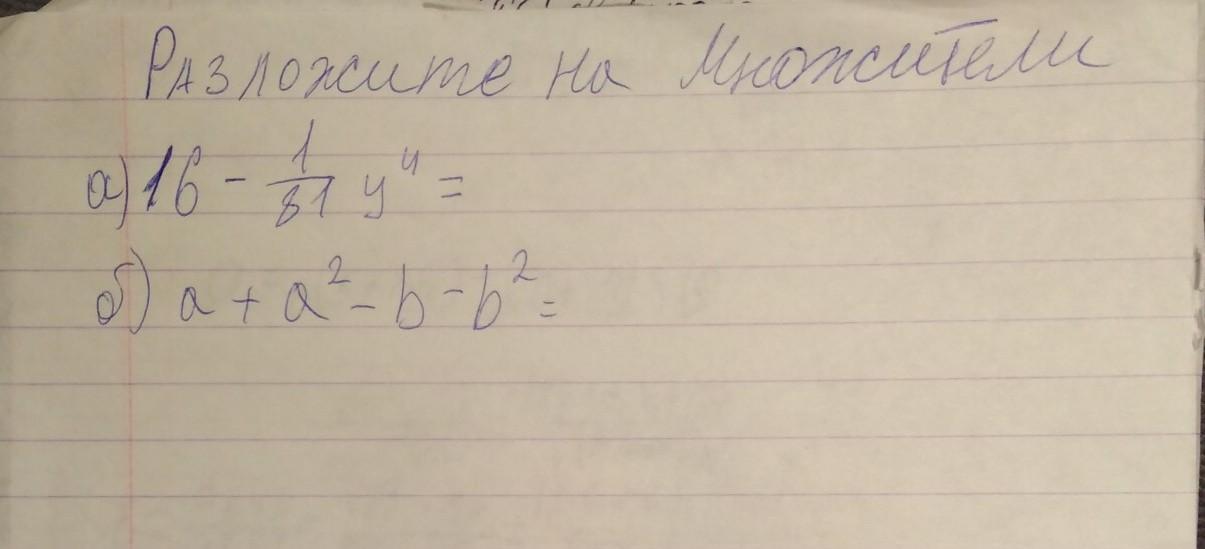 Разложите на множители
а) 16 - 1/81 y⁴ =
б) a + a² - b - b² =